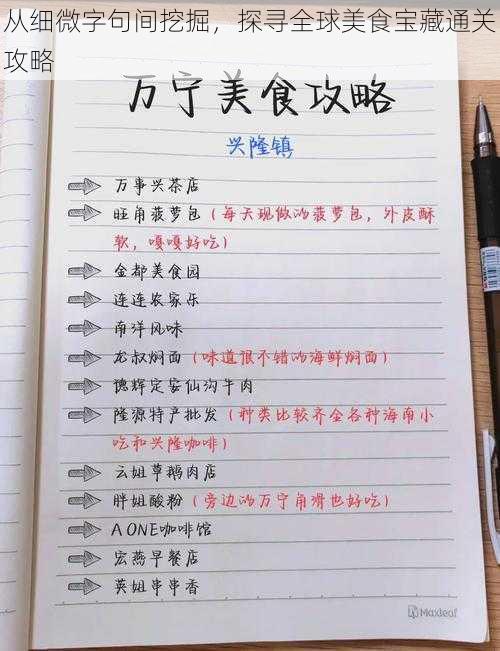 从细微字句间挖掘，探寻全球美食宝藏通关
攻略
万宁美食攻略
兴隆镇
万事兴茶店
旺角菠萝包（每天现做的菠萝包，外皮酥
软，嘎嘎好吃）
金都美食园
连连农家乐
南洋风味
龙叔焖面（味道很不错的海鲜焖面）
德辉定安仙沟牛肉
隆源特产批发（种类比较齐全各种海南小
吃和兴隆咖啡）
云姐草鹅肉店
胖姐酸粉（旁边的万宁角滑也好吃）
A ONE咖啡馆
宏燕早餐店
英姐串串香
Maxleaf